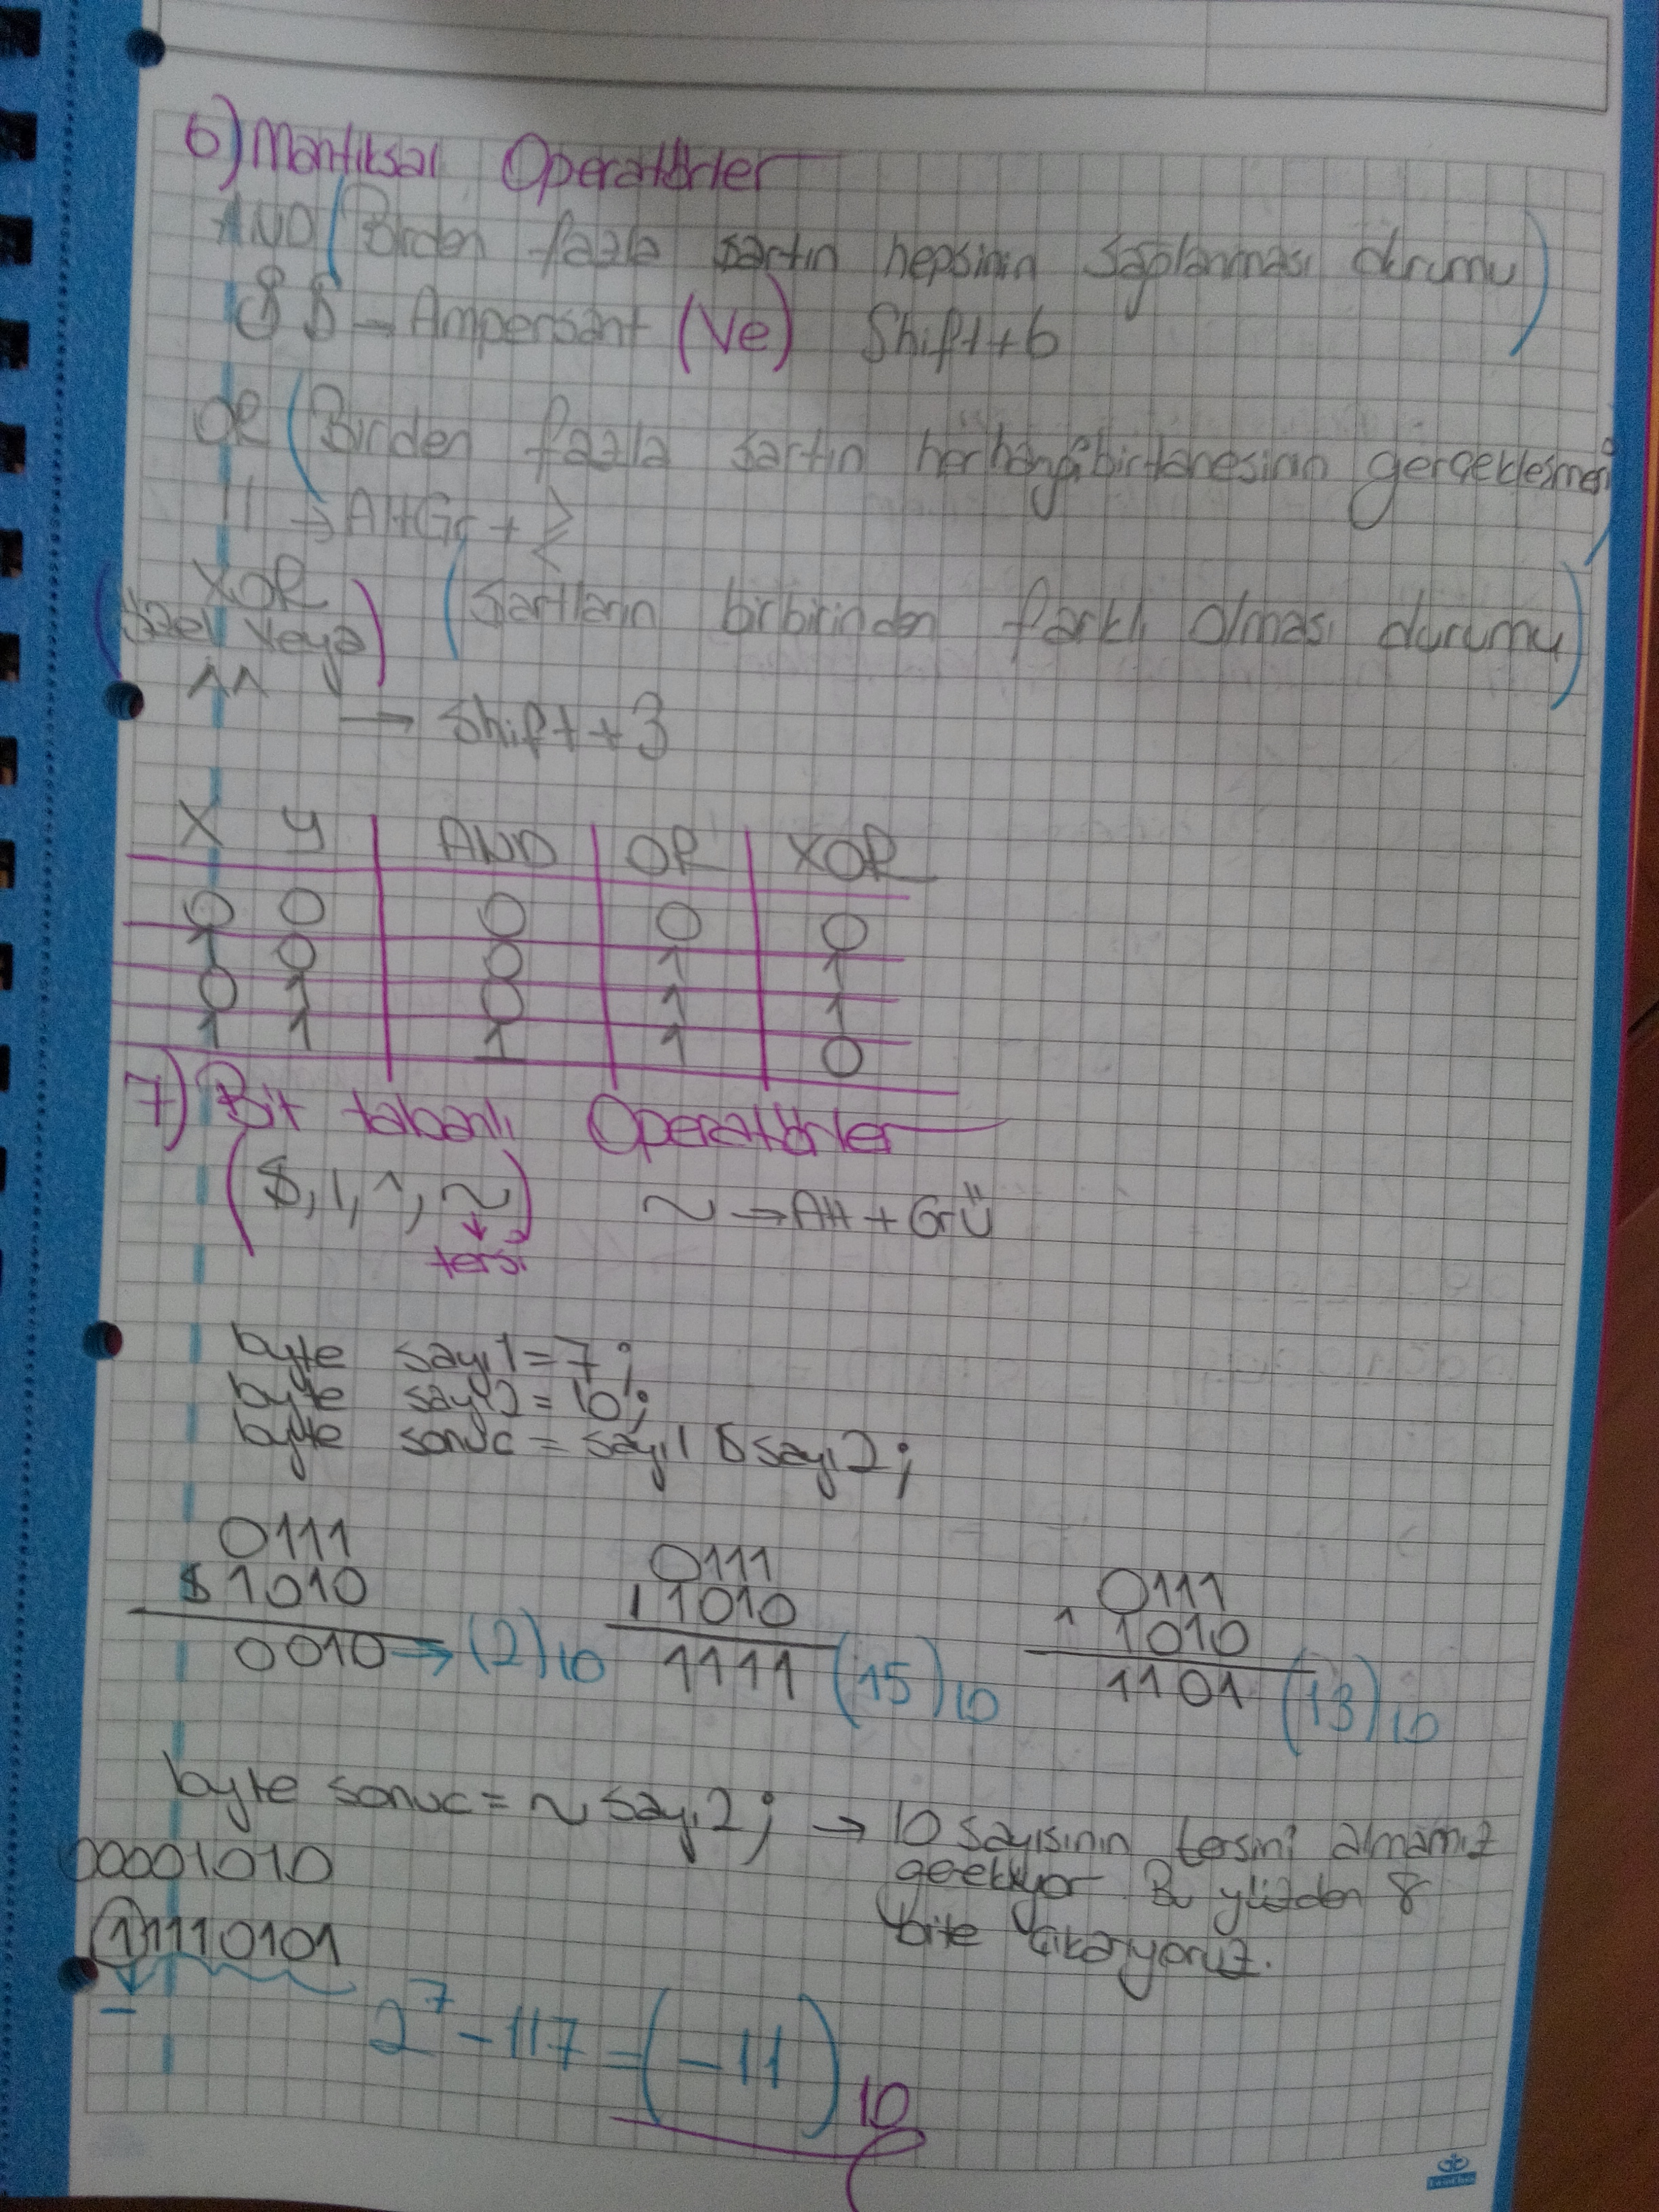 6) Mantıksal Operatörler
AND (Birden fazla şartın hepsinin sağlanması durumu)
&& → Ampersant (Ve) Shift+6
OR (Birden fazla şartın herhangi birtanesinin gerçekleşmesi)
|| → AltGr + >
<
XOR
(Özel Veya) (Şartların birbirinden farklı olması durumu)
^^
→ Shift + 3
X Y AND OR XOR
0 0 0 0 0
1 0 0 1 1
0 1 0 1 1
1 1 1 1 0
7) Bit tabanlı Operatörler
(&, |, ^, ~) ~ → Alt + Gr Ü
tersi
byte sayı1 = 7;
byte sayı2 = 10;
byte sonuc = sayı1 & sayı2;
0111 0111 0111
& 1010 | 1010 ^ 1010
0010 → (2)10 1111 (15)10 1101 (13)10
byte sonuc = ~ sayı2; → 10 sayısının tersini almamız
00001010 geekiyor Bu yüzden 8
11110101 bite çıkarıyoruz.
- 2^7 - 117 = (-11)10